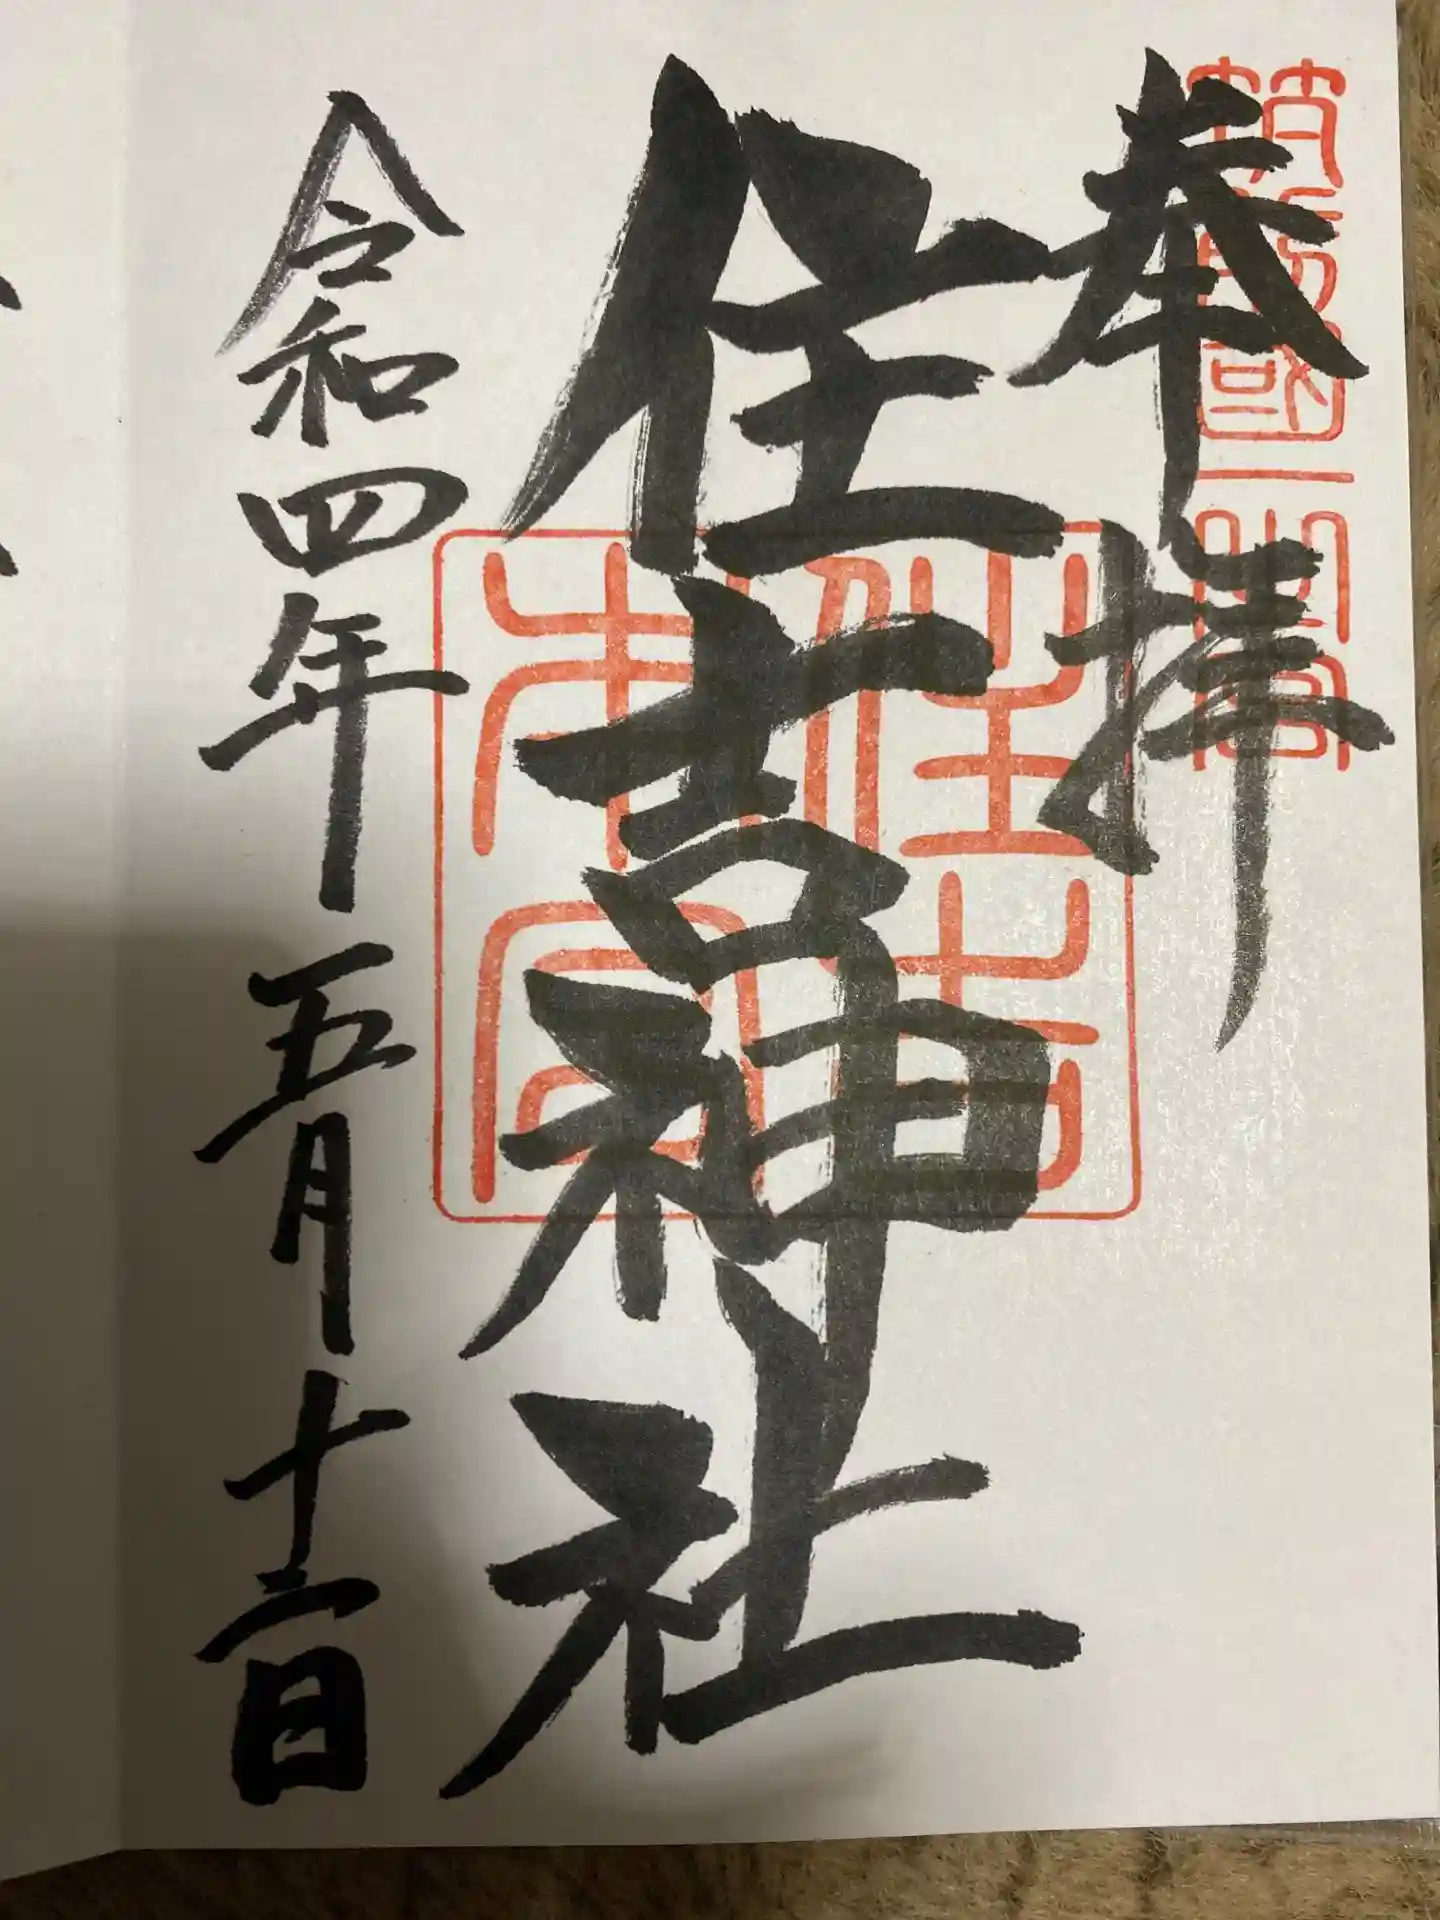 筑前國一宮
奉拝
住吉神社
令和四年五月十二日